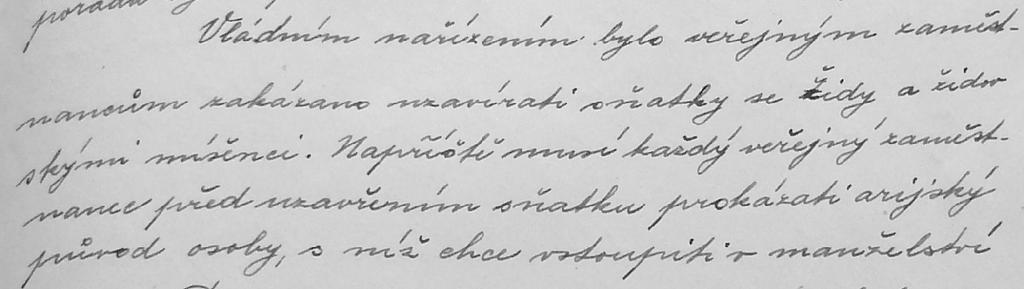 Vládním nařízením bylo veřejným zaměst-
nancům zakázano uzavírati sňatky se Židy a židov
skými míšenci. Napříště musí každý veřejný zaměst-
nanec před uzavřením sňatku prokázati arijský
původ osoby, s níž chce vstoupiti v manželství